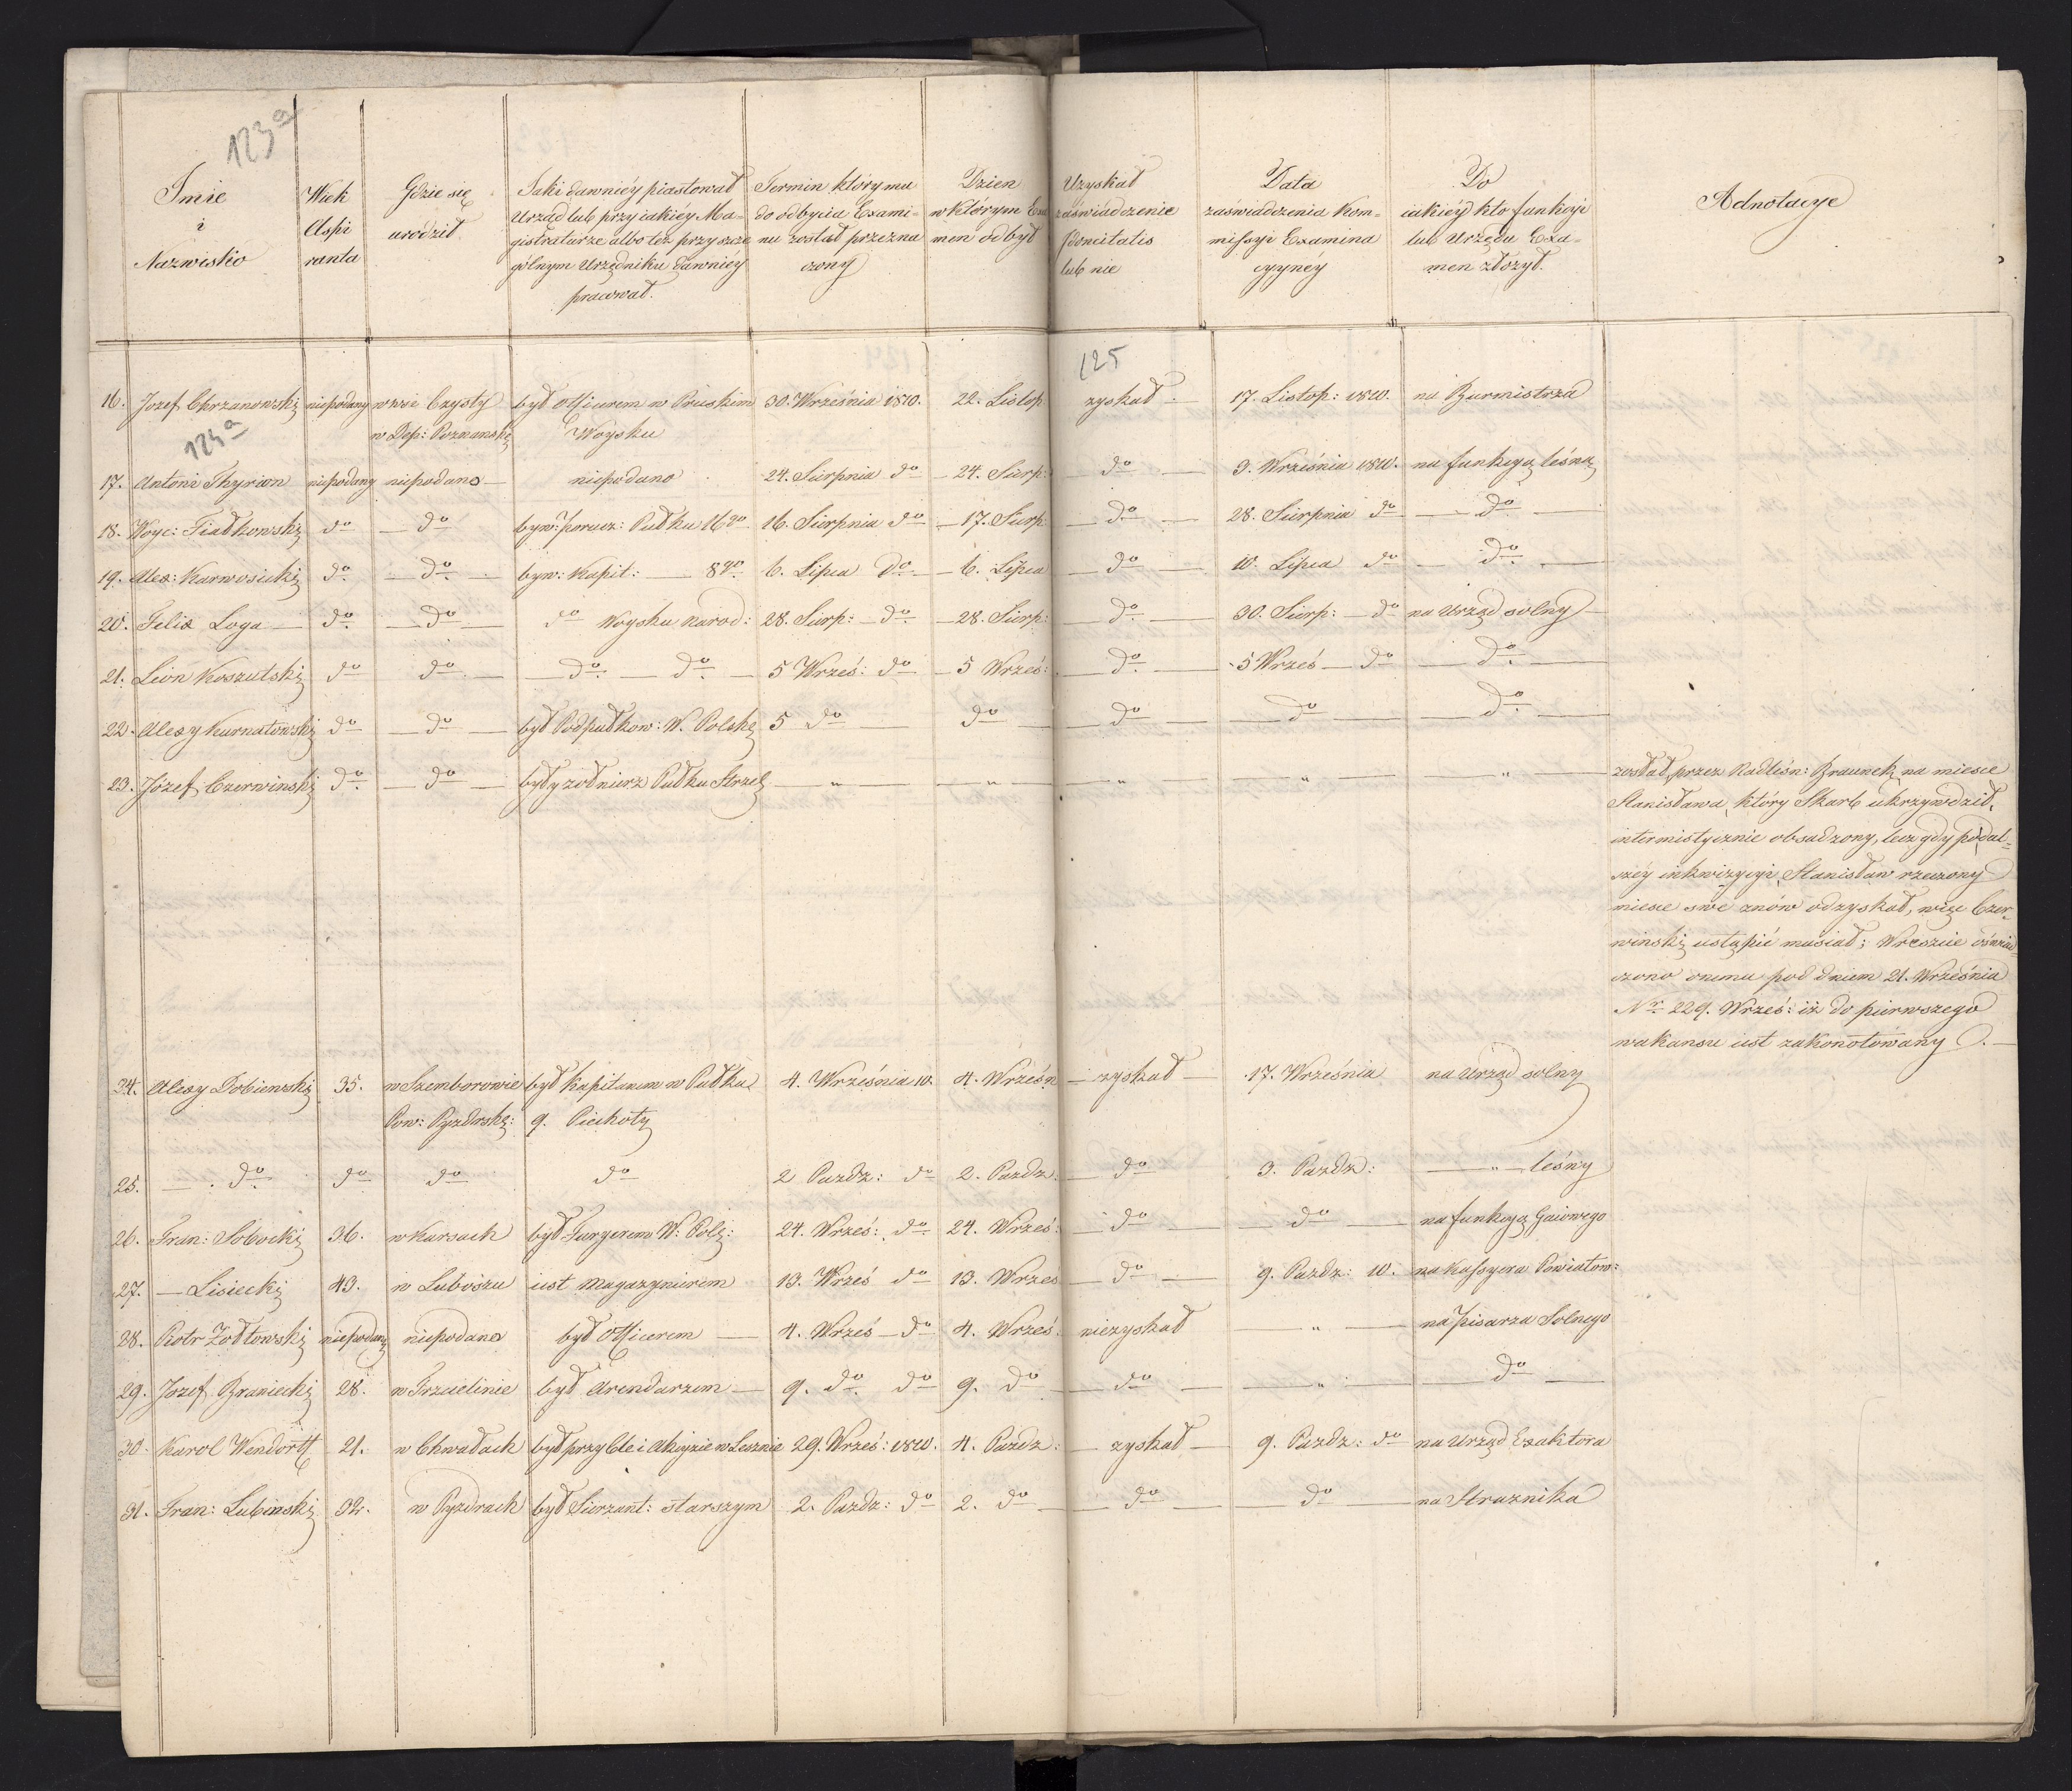 123a
Imie
i
Nazwisko
Wiek
Aspi
ranta
Gdzie się
urodził
Jaki dawniéy piastował
Urząd lub przy iakiéy Ma=
gistraturze albo też przy szcze
gólnym Urzędniku dawniéy
pracował.
Termin który mu
do odbycia Exami=
nu został przezna
czony
Dzien
w którym Exa
men odbył
Uzyskał
zaświadczenie
idoneitatis
lub nie
Data
zaświadczenia Kom=
missyi Examina
cyynéy
Do
iakiéy kto funkcyi
lub Urzędu Exa=
men złożył.
Adnotacye
125
16. Jozef Chrzanowski niepodany w wsi Czysty był Officerem w Pruskim 30. Września 1810. 22. Listop zyskał 17. Listop: 1810. na Burmistrza
w Dep: Poznansk: Woysku
124a
17. Antoni Thyrion niepodany niepodano niepodano 24. Sierpnia do 24. Sierp: do 3. Września 1810. na funkcyą leśną
18. Woyc: Fiałkowski do do byw: Porucz: Pułku 16go 16. Sierpnia do 17. Sierp: do 28. Sierpnia do do
19. Alex: Karwosiecki do do byw: Kapit: 8go 6. Lipca do 6. Lipca do 10. Lipca do do
20. Felix Loga do do do Woysku Narod: 28. Sierp: do 28. Sierp: do 30. Sierp: do na Urząd solny
21. Leon Koszutski do do do do 5 Wrześ: do 5 Wrześ: do 5 Wrześ do do
22. Alexy Kurnatowski do do był Podpułkow: W. Polsk: 5 do do do do do
23. Józef Czerwinski do do były zołnierz Pułku Strzel: " " " " "
został przez Nadleśn: Braunek na miesce
Stanisława, który Skarb ukrzywdził,
intermistycznie obsadzony, lecz gdy po dal=
széy inkwizycyi, Stanisław rzeczony
miesce swe znów odzyskał, więc Czer=
winski ustąpić musiał; Wreszcie oświad
czono onemu pod dniem 21. Września
Nr. 229. Wrześ: iż do pierwszego
wakansu iest zakonotowany.
24. Alexy Dobienski 35. w Szemborowie był Kapitanem w Pułku 4. Września 10. 4. Wrześn zyskał 17. Września na Urząd solny
Pow: Pyzdrsk: 9. Piechoty
25. do do do do 2 Pazdz: do 2. Pazdz. do 3. Pazdz: " leśny
26. Fran: Sobocki 36. w Karsach był Furyerem W: Pols: 24. Wrześ: do 24. Wrześ: do do na funkcyą Gaiowego
27. — Lisiecki 43. w Luboszu iest Magazynierem 13. Wrześ do 13. Wrześ do 9. Pazdz: 10. na Kassyera Powiatow:
28. Piotr Zołtowski niepodany niepodano był Officerem 4. Wrześ do 4. Wrześ: niezyskał " na Pisarza Solnego
29. Jozef Braniecki 28. w Trzcielinie był Arendarzem 9. do do 9. do do " do
30. Karol Wendorff 21. w Chwałach był przy Cle i Akcyzie w Lesznie 29. Wrześ: 1810. 4. Pazdz: zyskał 9. Pazdz: do na Urząd Exaktora
31. Fran: Lubinski 32. w Pyzdrach był Sierzant: starszym 2. Pazdz: do 2. do do do na Straznika